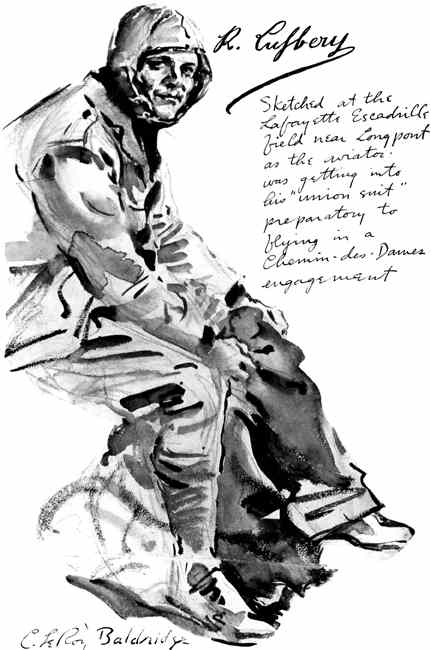 R. Lufbery
Sketched at the
Lafayette Escadrille
field near Longpont
as the aviator
was getting into
his "union suit"
preparatory to
flying in a
Chemin-des-Dames
engagement
C. LeRoy Baldridge